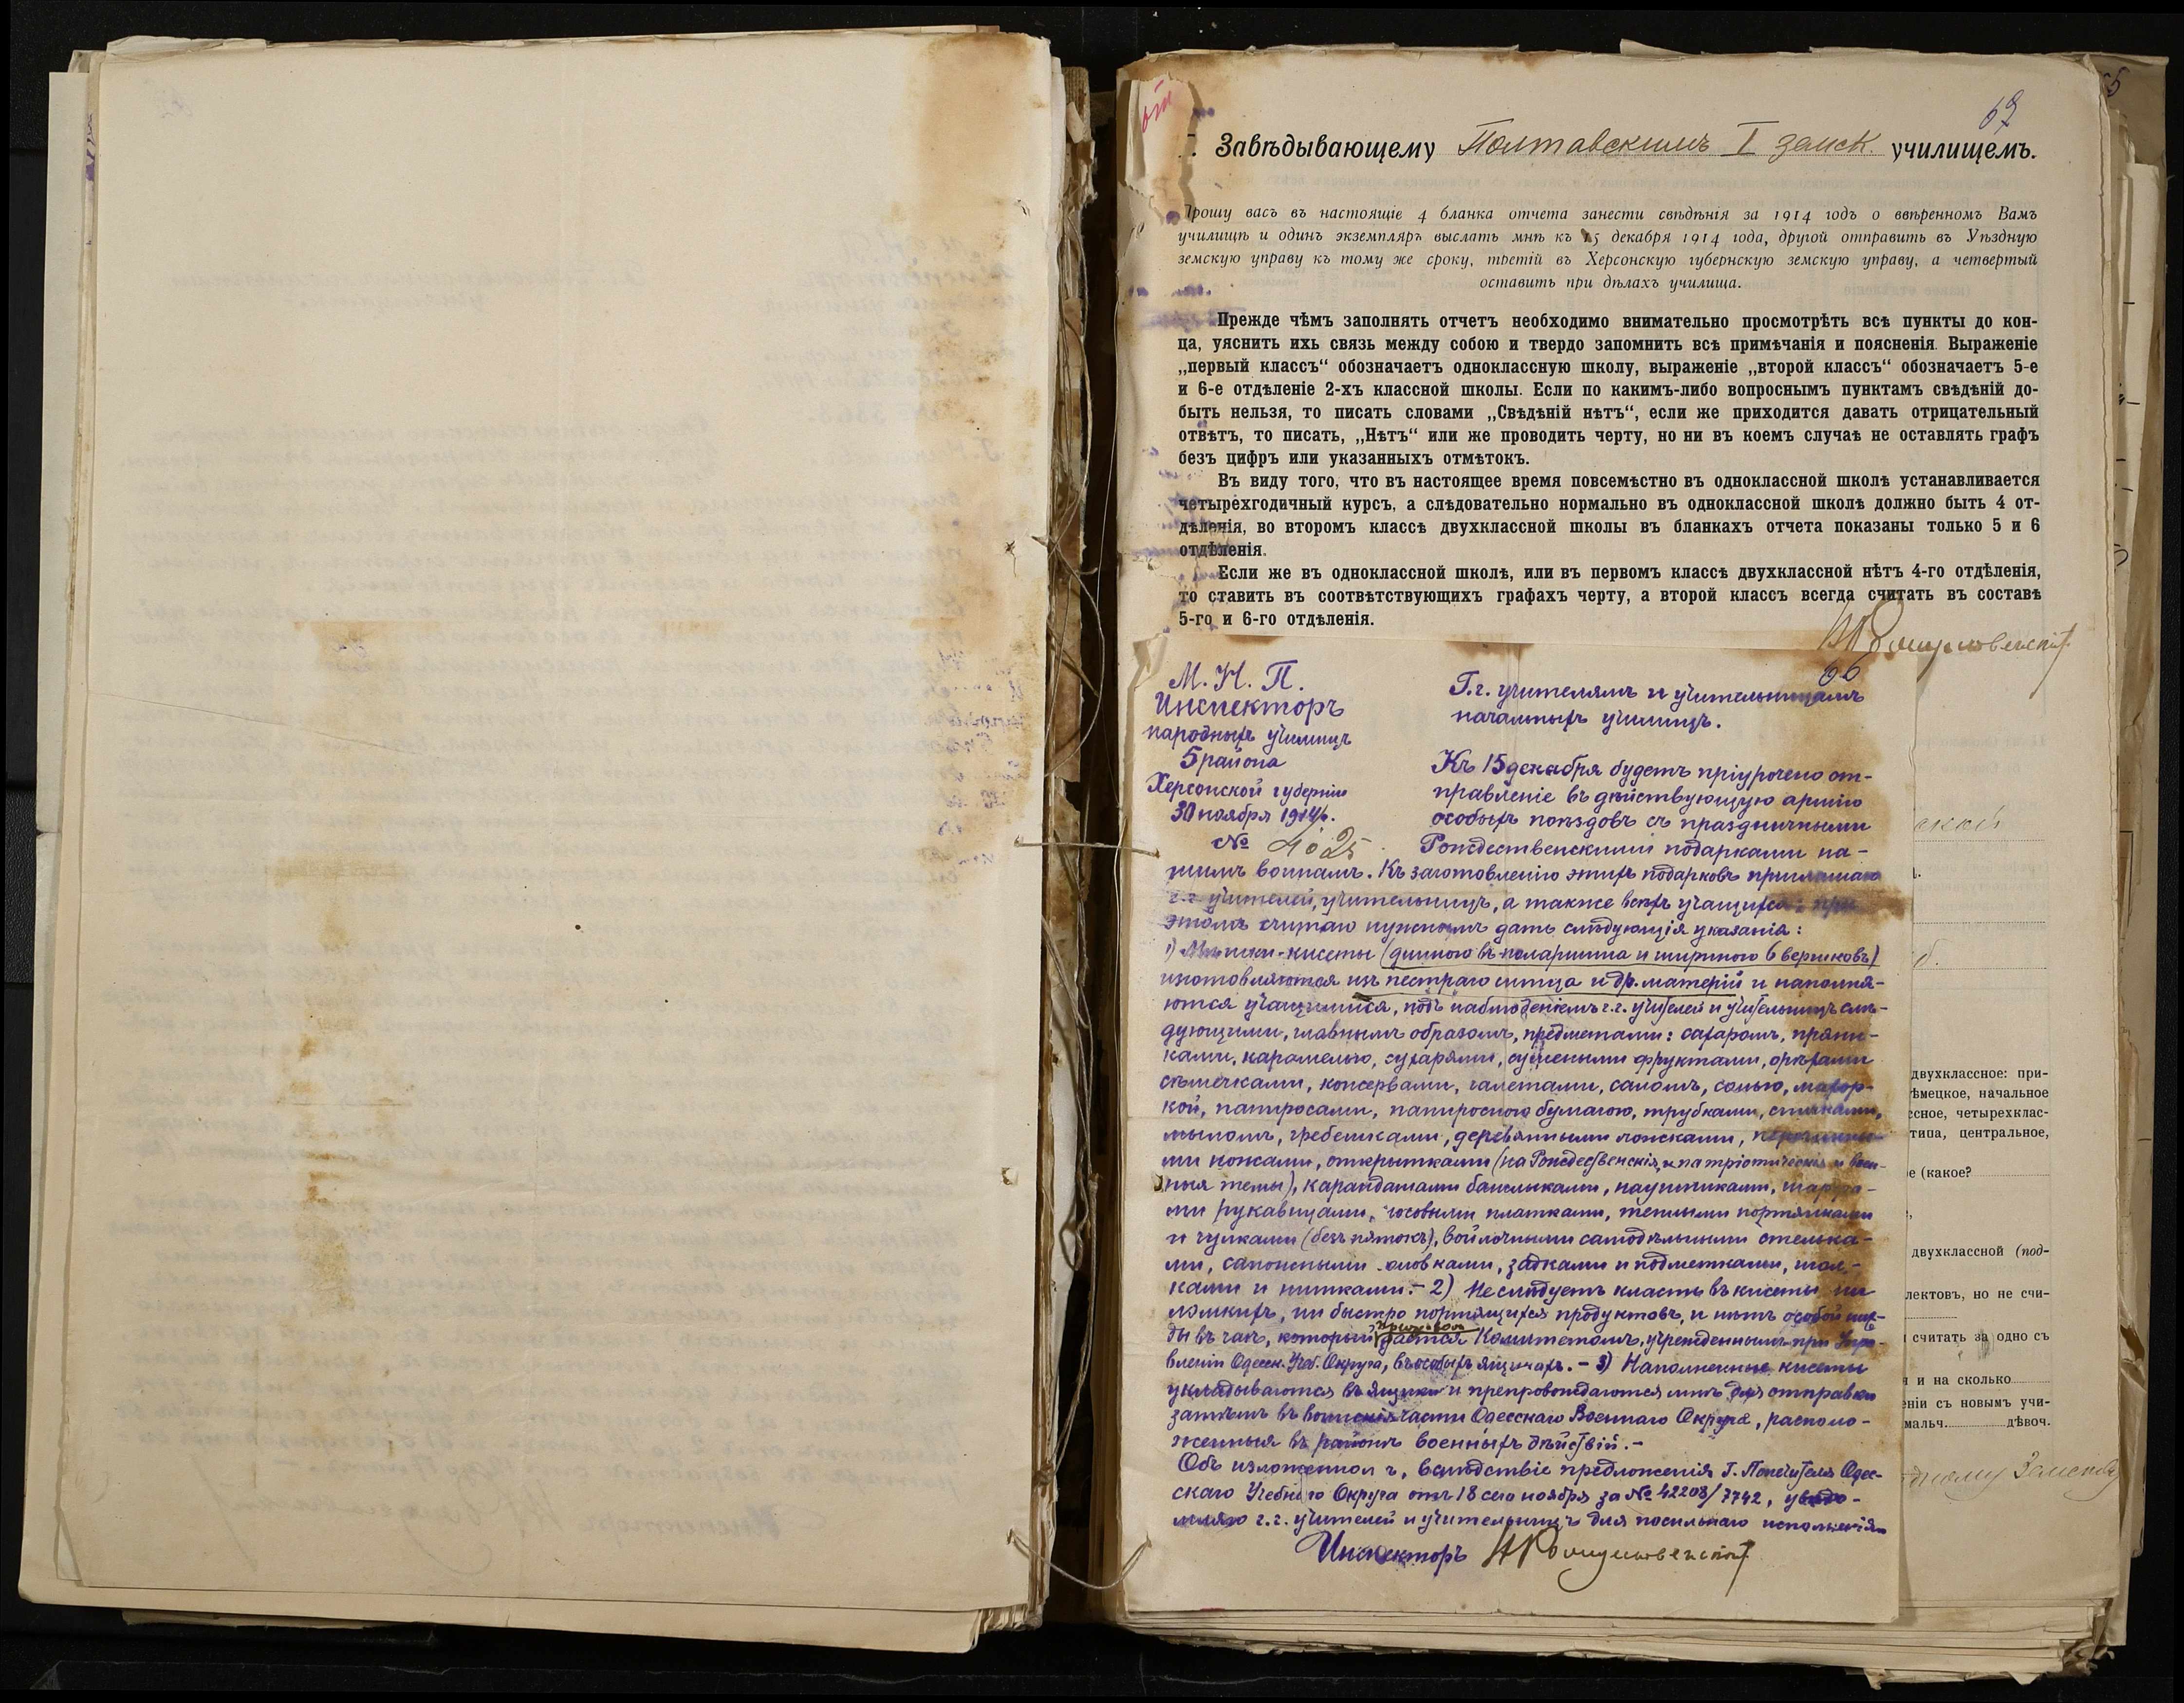 67
Г. Завѣдывающему Полтавскимъ I земск. училищемъ.
Прошу васъ въ настоящіе 4 бланка отчета занести свѣдѣнія за 1914 годъ о ввѣренномъ Вамъ
училищѣ и одинъ экземпляръ выслать мнѣ къ 15 декабря 1914 года, другой отправить въ Уѣздную
земскую управу къ тому же сроку, третій въ Херсонскую губернскую земскую управу, а четвертый
оставить при дѣлахъ училища.
Прежде чѣмъ заполнять отчетъ необходимо внимательно просмотрѣть всѣ пункты до кон-
ца, уяснить ихъ связь между собою и твердо запомнить всѣ примѣчанія и поясненія. Выраженіе
„первый классъ“ обозначаетъ одноклассную школу, выраженіе „второй классъ“ обозначаетъ 5-е
и 6-е отдѣленіе 2-хъ классной школы. Если по какимъ-либо вопроснымъ пунктамъ свѣдѣній до-
быть нельзя, то писать словами „Свѣдѣній нѣтъ“, если же приходится давать отрицательный
отвѣтъ, то писать, „Нѣтъ“ или же проводить черту, но ни въ коемъ случаѣ не оставлять графъ
безъ цифръ или указанныхъ отмѣтокъ.
Въ виду того, что въ настоящее время повсемѣстно въ одноклассной школѣ устанавливается
четырехгодичный курсъ, а слѣдовательно нормально въ одноклассной школѣ должно быть 4 от-
дѣленія, во второмъ классѣ двухклассной школы въ бланкахъ отчета показаны только 5 и 6
отдѣленія.
Если же въ одноклассной школѣ, или въ первомъ классѣ двухклассной нѣтъ 4-го отдѣленія,
то ставить въ соотвѣтствующихъ графахъ черту, а второй классъ всегда считать въ составѣ
5-го и 6-го отдѣленія.
66
М. Н. П.
Инспекторъ
народныхъ училищъ
5 района
Херсонской губерніи
30 ноября 1914 г.
№ 4025
Г.г. учителямъ и учительницамъ
начальныхъ училищъ.
Къ 15 декабря будетъ пріурочено от-
правленіе въ дѣйствующую армію
особыхъ поѣздовъ съ праздничными
Рождественскими подарками на-
шимъ воинамъ. Къ заготовленію этихъ подарковъ приглашаю
г.г. учителей, учительницъ, а также всѣхъ учащихся; при
этомъ считаю нужнымъ дать слѣдующія указанія:
1) Мѣшки-кисеты (длиною въ поларшина и шириною 6 вершковъ)
изготовляются изъ пестраго ситца и др. матерій и наполня-
ются учащимися, подъ наблюденіемъ г.г. учителей и учительницъ слѣ-
дующими, главнымъ образомъ, предметами: сахаромъ, пряни-
ками, карамелью, сухарями, сушеными фруктами, орѣхами
сѣмечками, консервами, галетами, саломъ, солью, махор-
кой, папиросами, папиросною бумагою, трубками, спичками,
мыломъ, гребешками, деревянными ложками, перочинны-
ми ножами, открытками (на Рождественскія, и патріотическія и воен-
ныя темы), карандашами башлыками, наушниками, шарфа-
ми рукавицами, носовыми платками, теплыми портянками
и чулками (безъ пятокъ), войлочными самодѣльными стелька-
ми, сапожными головками, задками и подметками, игол-
ками и нитками. – 2) Не слѣдуетъ класть въ кисеты ни
ломкихъ, ни быстро портящихся продуктовъ, и нѣтъ особой нуж-
ды въ чаѣ, который дается Комитетомъ, учрежденнымъ при Упра-
вленіи Одесск. Учеб. Округа, въ особыхъ ящикахъ. – 3) Наполненные кисеты
укладываются въ ящики и препровождаются мнѣ для отправки
затѣмъ въ воинскія части Одесскаго Военнаго Округа, располо-
женныя въ районѣ военныхъ дѣйствій. –
Объ изложенномъ, вслѣдствіе предложенія Г. Попечителя Одес-
скаго Учебнаго Округа отъ 18 сего ноября за № 42208/7742, увѣдо-
мляю г.г. учителей и учительницъ для посильнаго исполненія.
Инспекторъ
двухклассное: при-
ѣмецкое, начальное
ссное, четырехклас-
типа, центральное,
е (какое?
двухклассной (под-
лектовъ, но не счи-
считать за одно съ
и на сколько
еніи съ новымъ учи-
мальч. дѣвоч.